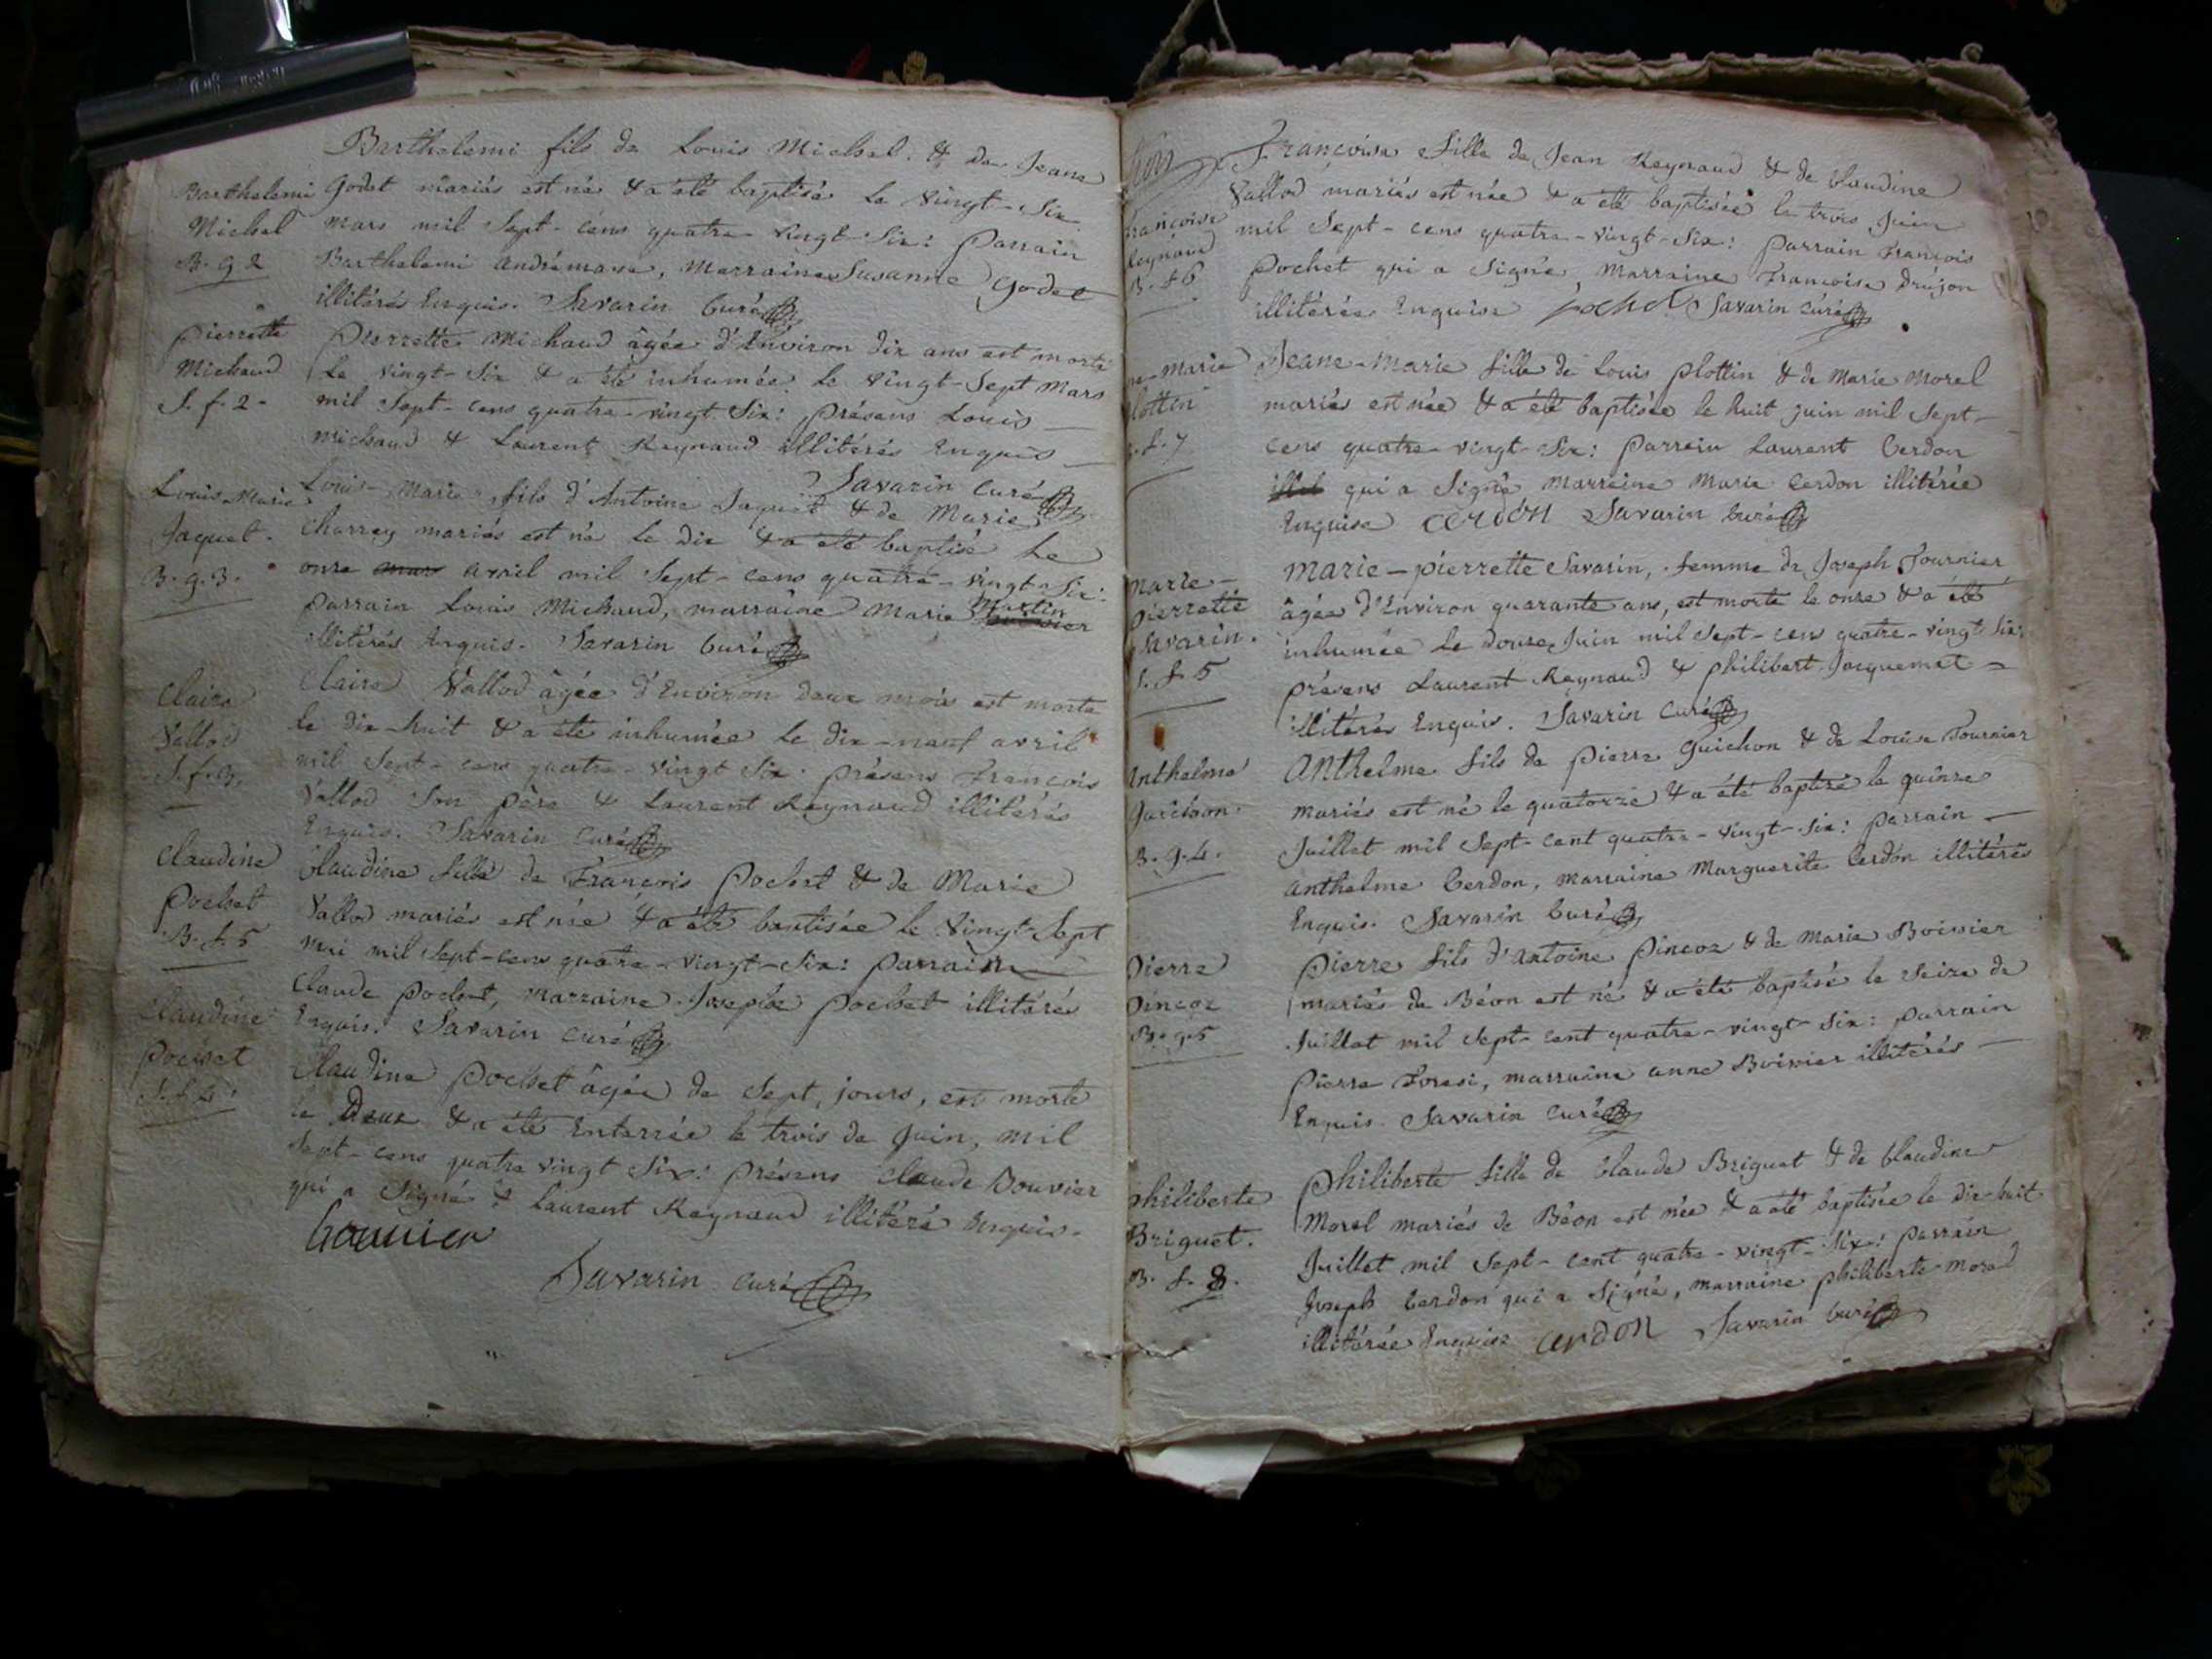 Barthelemi fils de Louis Michel & de Jeane
Barthelemi
Michel
B. g 2
Godet mariés est né & a été baptisé le vingt-six
mars mil sept-cens quatre-vingt-six: parrain
Barthelemi andrémasse, marraine Susanne godet
illitérés Enquis. Savarin Curé
pierrette
Michaud
S. f. 2.
Pierrette Michaud âgée d'Environ dix ans est morte
le vingt-six & a été inhumée le vingt-sept mars
mil sept-cens quatre-vingt six: présens Louis
michaud & Laurent Reynaud illitérés Enquis
Savarin Curé
Louis-Marie
Jaquet.
B. g. 3.
Louis-Marie fils d'Antoine Jaquet & de Marie
Charrey mariés est né le dix & a été baptisé le
onze mars avril mil sept-cens quatre-vingt-six:
parrain Louis Michaud, marraine Marie Martin
illitérés Enquis. Savarin Curé
Claire
Vallod
S. f. 3.
Claire Vallod âgée d'Environ deux mois est morte
le dix-huit & a été inhumée le dix-neuf avril
mil sept-cens quatre-vingt six: présens François
Vallod son père & Laurent Reynaud illitérés
Enquis. Savarin Curé
Claudine
Pochet
B. f. 5
Claudine fille de François Pochet & de Marie
Vallod mariés est née & a été baptisée le vingt-sept
mai mil sept-cens quatre-vingt-six: parrain
Claude pochet, marraine Josephe pochet illitérés
Enquis. Savarin Curé
Claudine
Pochet
S. f. 4.
Claudine Pochet âgée de sept jours, est morte
le Deux & a été Enterrée le trois de Juin, mil
sept-cens quatre vingt six: présens Claude Bouvier
qui a signé & Laurent Reynaud illitéré Enquis.
bouvier
Savarin Curé
françoise
Reynaud
B. f 6
françoise fille de Jean Reynaud & de Claudine
Vallod mariés est née & a été baptisée le trois Juin
mil sept-cens quatre-vingt-six: parrain François
Pochet qui a signé, marraine Françoise Drujon
illitérée Enquise pochet Savarin Curé
ne-Marie
plottin
B. f. 7
Jeane-Marie fille de Louis plottin & de Marie Morel
mariés est née & a été baptisée le huit juin mil sept-
cens quatre-vingt-six: parrain Laurent Cerdon
illet qui a signé marraine Marie Cerdon illitérée
Enquise cerdon Savarin Curé
Marie-
pierrette
Savarin.
S. f 5
Marie-pierrette Savarin, femme de Joseph Fournier
âgée d'Environ quarante ans, est morte le onze & a été
inhumée le douze Juin mil sept-cens quatre-vingt six:
présens Laurent Reynaud & philibert Jacquemet
illitérés Enquis. Savarin Curé
Anthelme
Guichon.
B. g. 4.
Anthelme fils de pierre Guichon & de Louise Fournier
mariés est né le quatorze & a été baptisé le quinze
Juillet mil sept-cent quatre-vingt-six: parrain
anthelme Cerdon, marraine Marguerite Cerdon illitérés
Enquis. Savarin Curé
Pierre
Pincoz
B. g. 5
Pierre fils d'Antoine Pincoz & de Marie Boivier
mariés de Béon est né & a été baptisé le seize de
Juillet mil sept-cent quatre-vingt-six: parrain
Pierre, marraine anne Boivier illitérés
Enquis. Savarin Curé
philiberte
Briguet.
B. f. 8.
Philiberte fille de Claude Briguet & de Claudine
Morel mariés de Béon est née & a été baptisée le dix-huit
Juillet mil sept-cent quatre-vingt-six: parrain
Joseph Cerdon qui a signé, marraine philiberte Morel
illitérée Enquise cerdon Savarin Curé